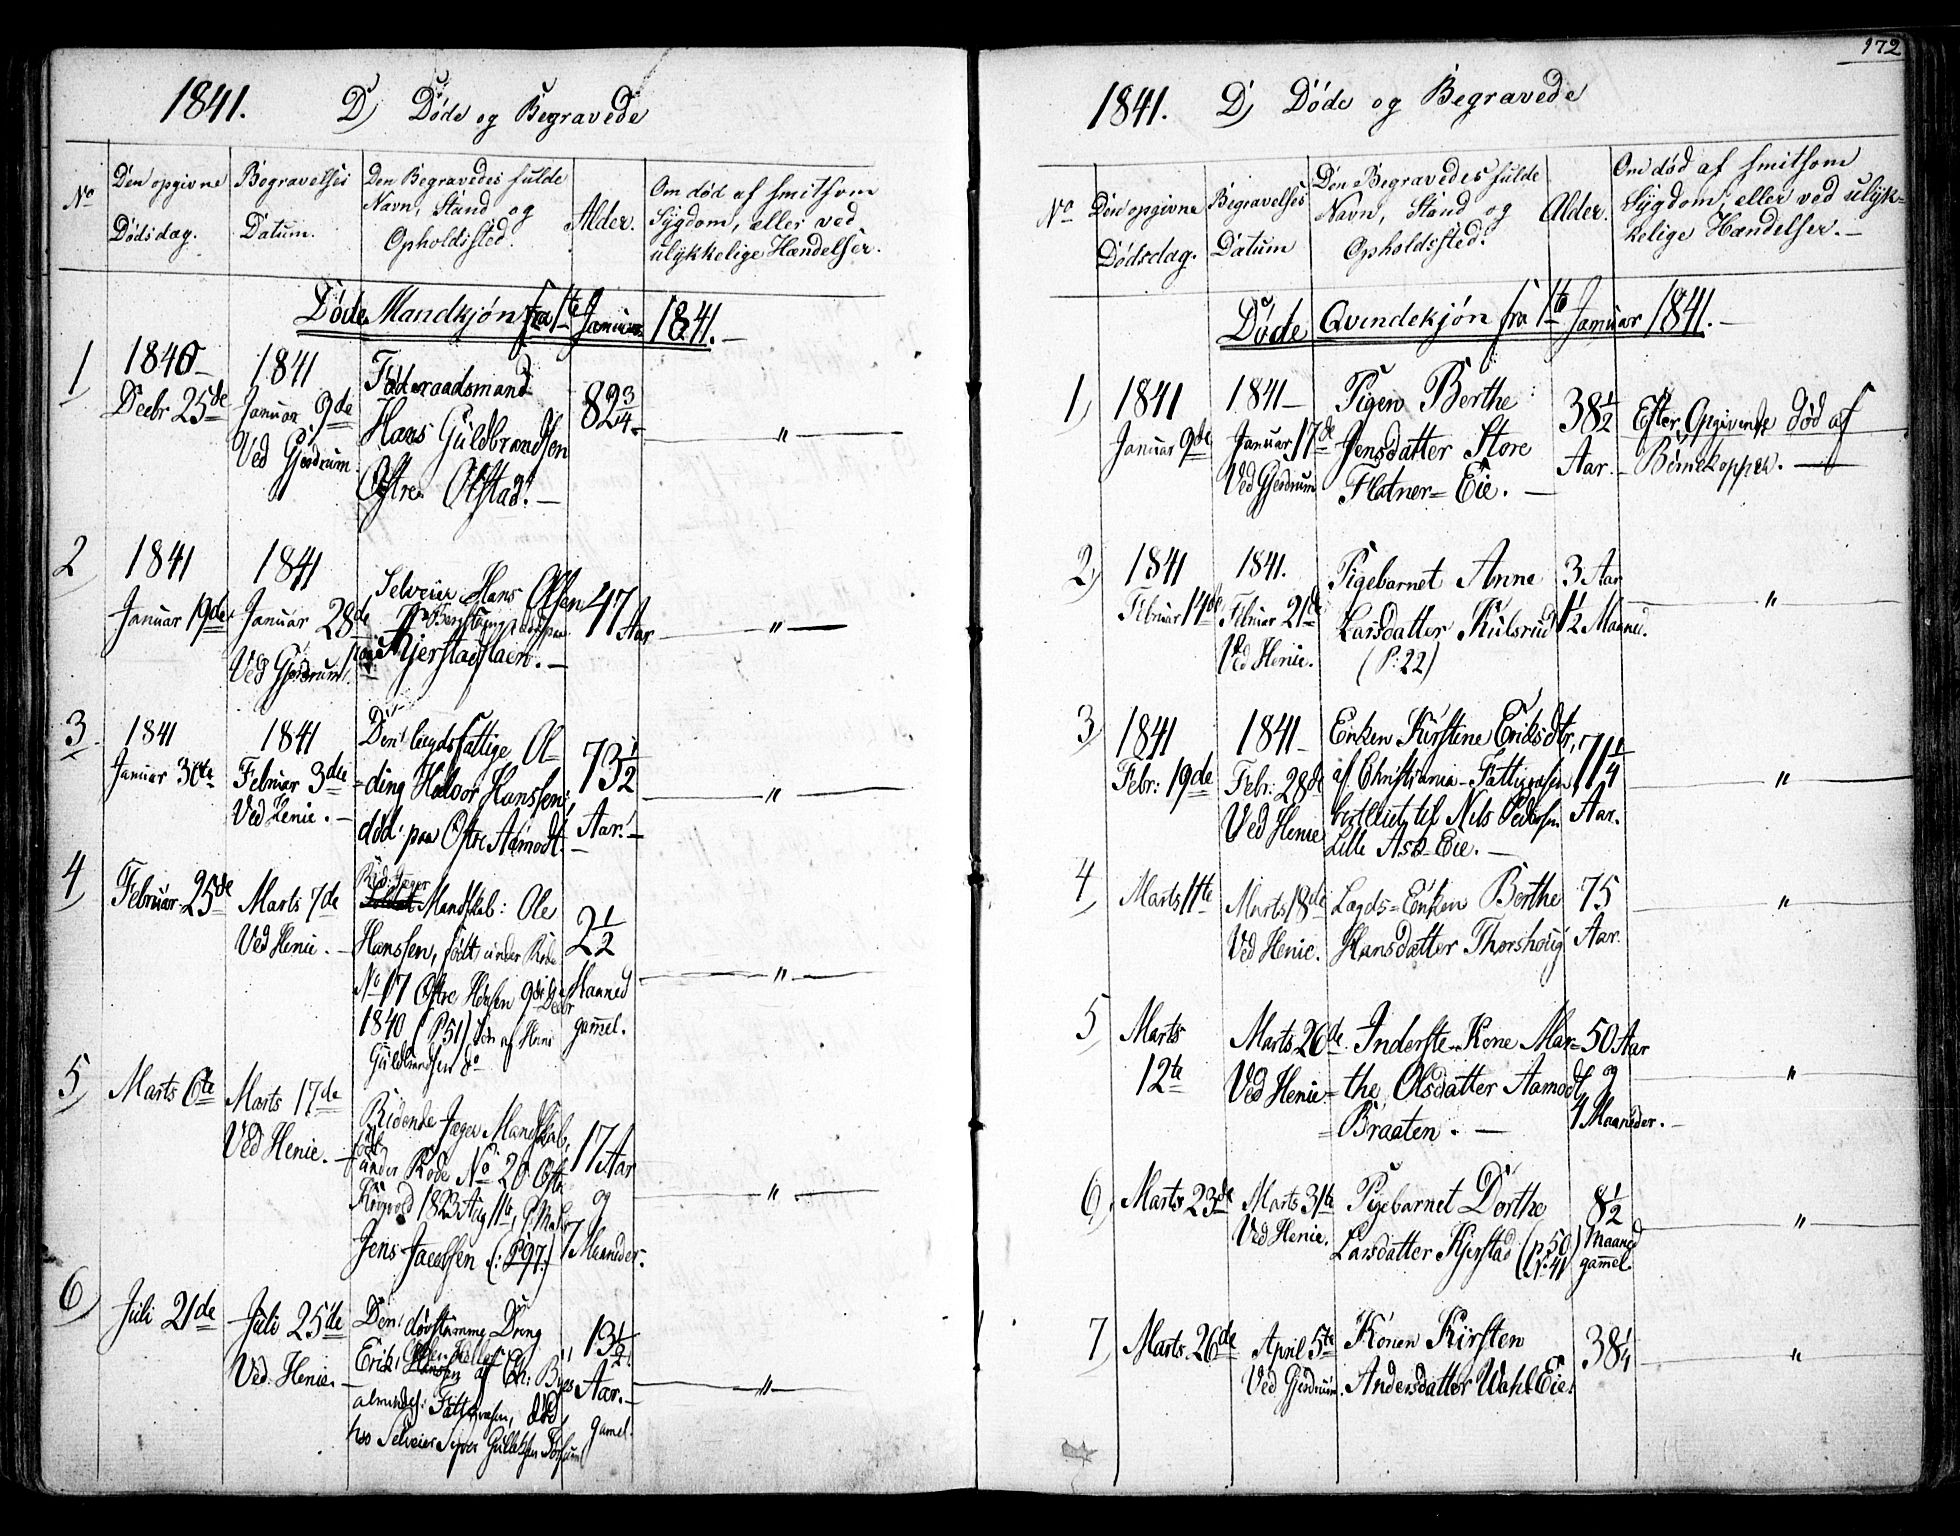 1841. D) Døde og Begravede
No
Den opgivne
Dødsdag.
Begravelses
Datum.
Den Begravedes fulde
Navn, Stand og
Opholdssted.
Alder.
Om død af smitsom
Sygdom, eller ved
ulykkelige Hændelser.
Døde Mandkjøn fra 1te Januar 1841.
1
1840
Decbr 25de
1841
Januar 9de
Ved Gjerdrum
Føderaadsmand
Hans Guldbrandsen
Østre Olstad.
82 3/4
"
2
1841
Januar 19de
1841
Januar 28de
Ved Gjerdrum
Selveier Hans Olsen
Kjerstadflaen.
47 Aar
"
3
1841
Januar 30te
1841
Februar 3die
Ved Henie.
Den lægdsfattige Ol-
ding Halvor Hanssen
død paa Østre Aamodt.
73 1/2
Aar.
"
4
Februar 25de
Marts 7de
Ved Henie.
Rid: Jæger
Mandskab: Ole
Hanssen, født under Rode
No 17 Østre 9de Decbr
1840 (P. 51) Søn af Hans
Guldbrandsen do
2 1/2
Maaned
gammel.
"
5
Marts 6te
Marts 17de
Ved Henie.
Ridende Jæger Mandskab,
født
under Rode No 20 Østre
Krogvold 1823 Aug 11te,
Jens Jacobsen (: P 97:)
17 Aar
og
7 Maaneder.
"
6
Juli 21de
Juli 25de
Ved Henie
Den døvstumme Dreng
Erik af Ch: Byes
almindel: Fattigvæsen, død
hos Selveier Syver Gulliksen
13 1/2
Aar.
gamel.
"
172
1841. D) Døde og Begravede
No
Den opgivne
Dødsdag.
Begravelses
Datum
Den Begravedes fulde
Navn, Stand og
Opholdssted.
Alder.
Om død af smitsom
Sygdom, eller ved ulyk-
kelige Hændelser.
Døde Qvindekjøn fra 1te Januar 1841.
1)
1841
Januar 9de
1841
Januar 17de
Ved Gjerdrum
Pigen Berthe
Jensdatter Store
Flatner=Eie.
38 1/2
Aar.
Efter Opgivende død af
Børnekopper.
2)
1841
Februar 14de
1841.
Februar 21de
Ved Henie.
Pigebarnet Anne
Larsdatter Kulsrud
(P: 22)
3 Aar
1 1/2 Maaned.
"
3
1841
Febr: 19de
1841
Feb: 28de
Ved Henie
Enken Kirstine Eriksdtr,
af Christiania Fattigvæsen,
bortleiet til Nils Pedersen
Lille Ask-Eie.
71 1/4
Aar.
"
4
Marts 11te
Marts 18de
Ved Henie.
Lægds=Enken Berthe
Hansdatter Thorshoug
75
Aar.
"
5
Marts
12te
Marts 26de
Ved Henie
Inderste Kone Mar=
the Olsdatter Aamodt
=Braaten.
50 Aar
og
4 Maaneder.
"
6)
Marts 23de
Marts 31te
Ved Henie.
Pigebarnet Dorthe
Larsdatter Kjerstad (p. 50
N. 41)
8 1/2
Maaned
gammel.
"
7)
Marts 26de
April 5te
Ved Gjerdrum.
Konen Kirsten
Andersdatter Wahl Eie.
38 1/4
"